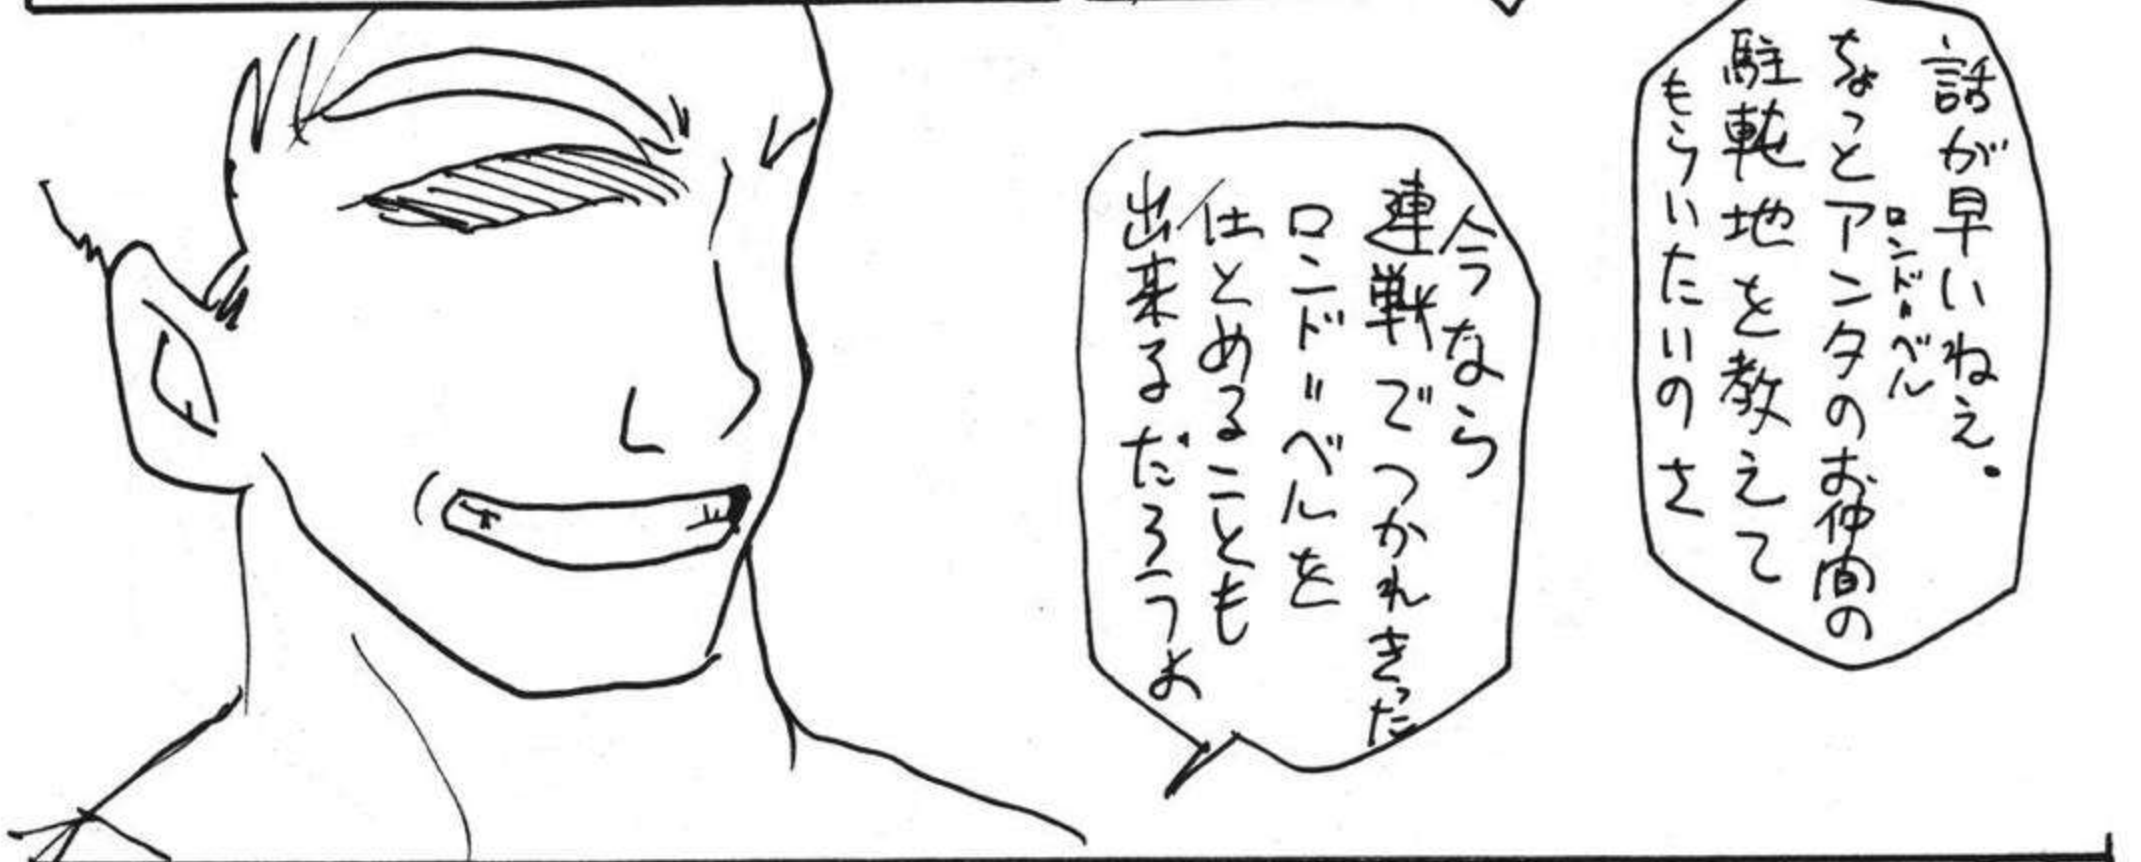 話が早いねえ。
ちょっとアンタのお仲間の
ロンド=ベル
駐屯地を教えて
もらいたいのさ
今なら
連戦でつかれきった
ロンド=ベルを
仕とめることも
出来るだろうよ